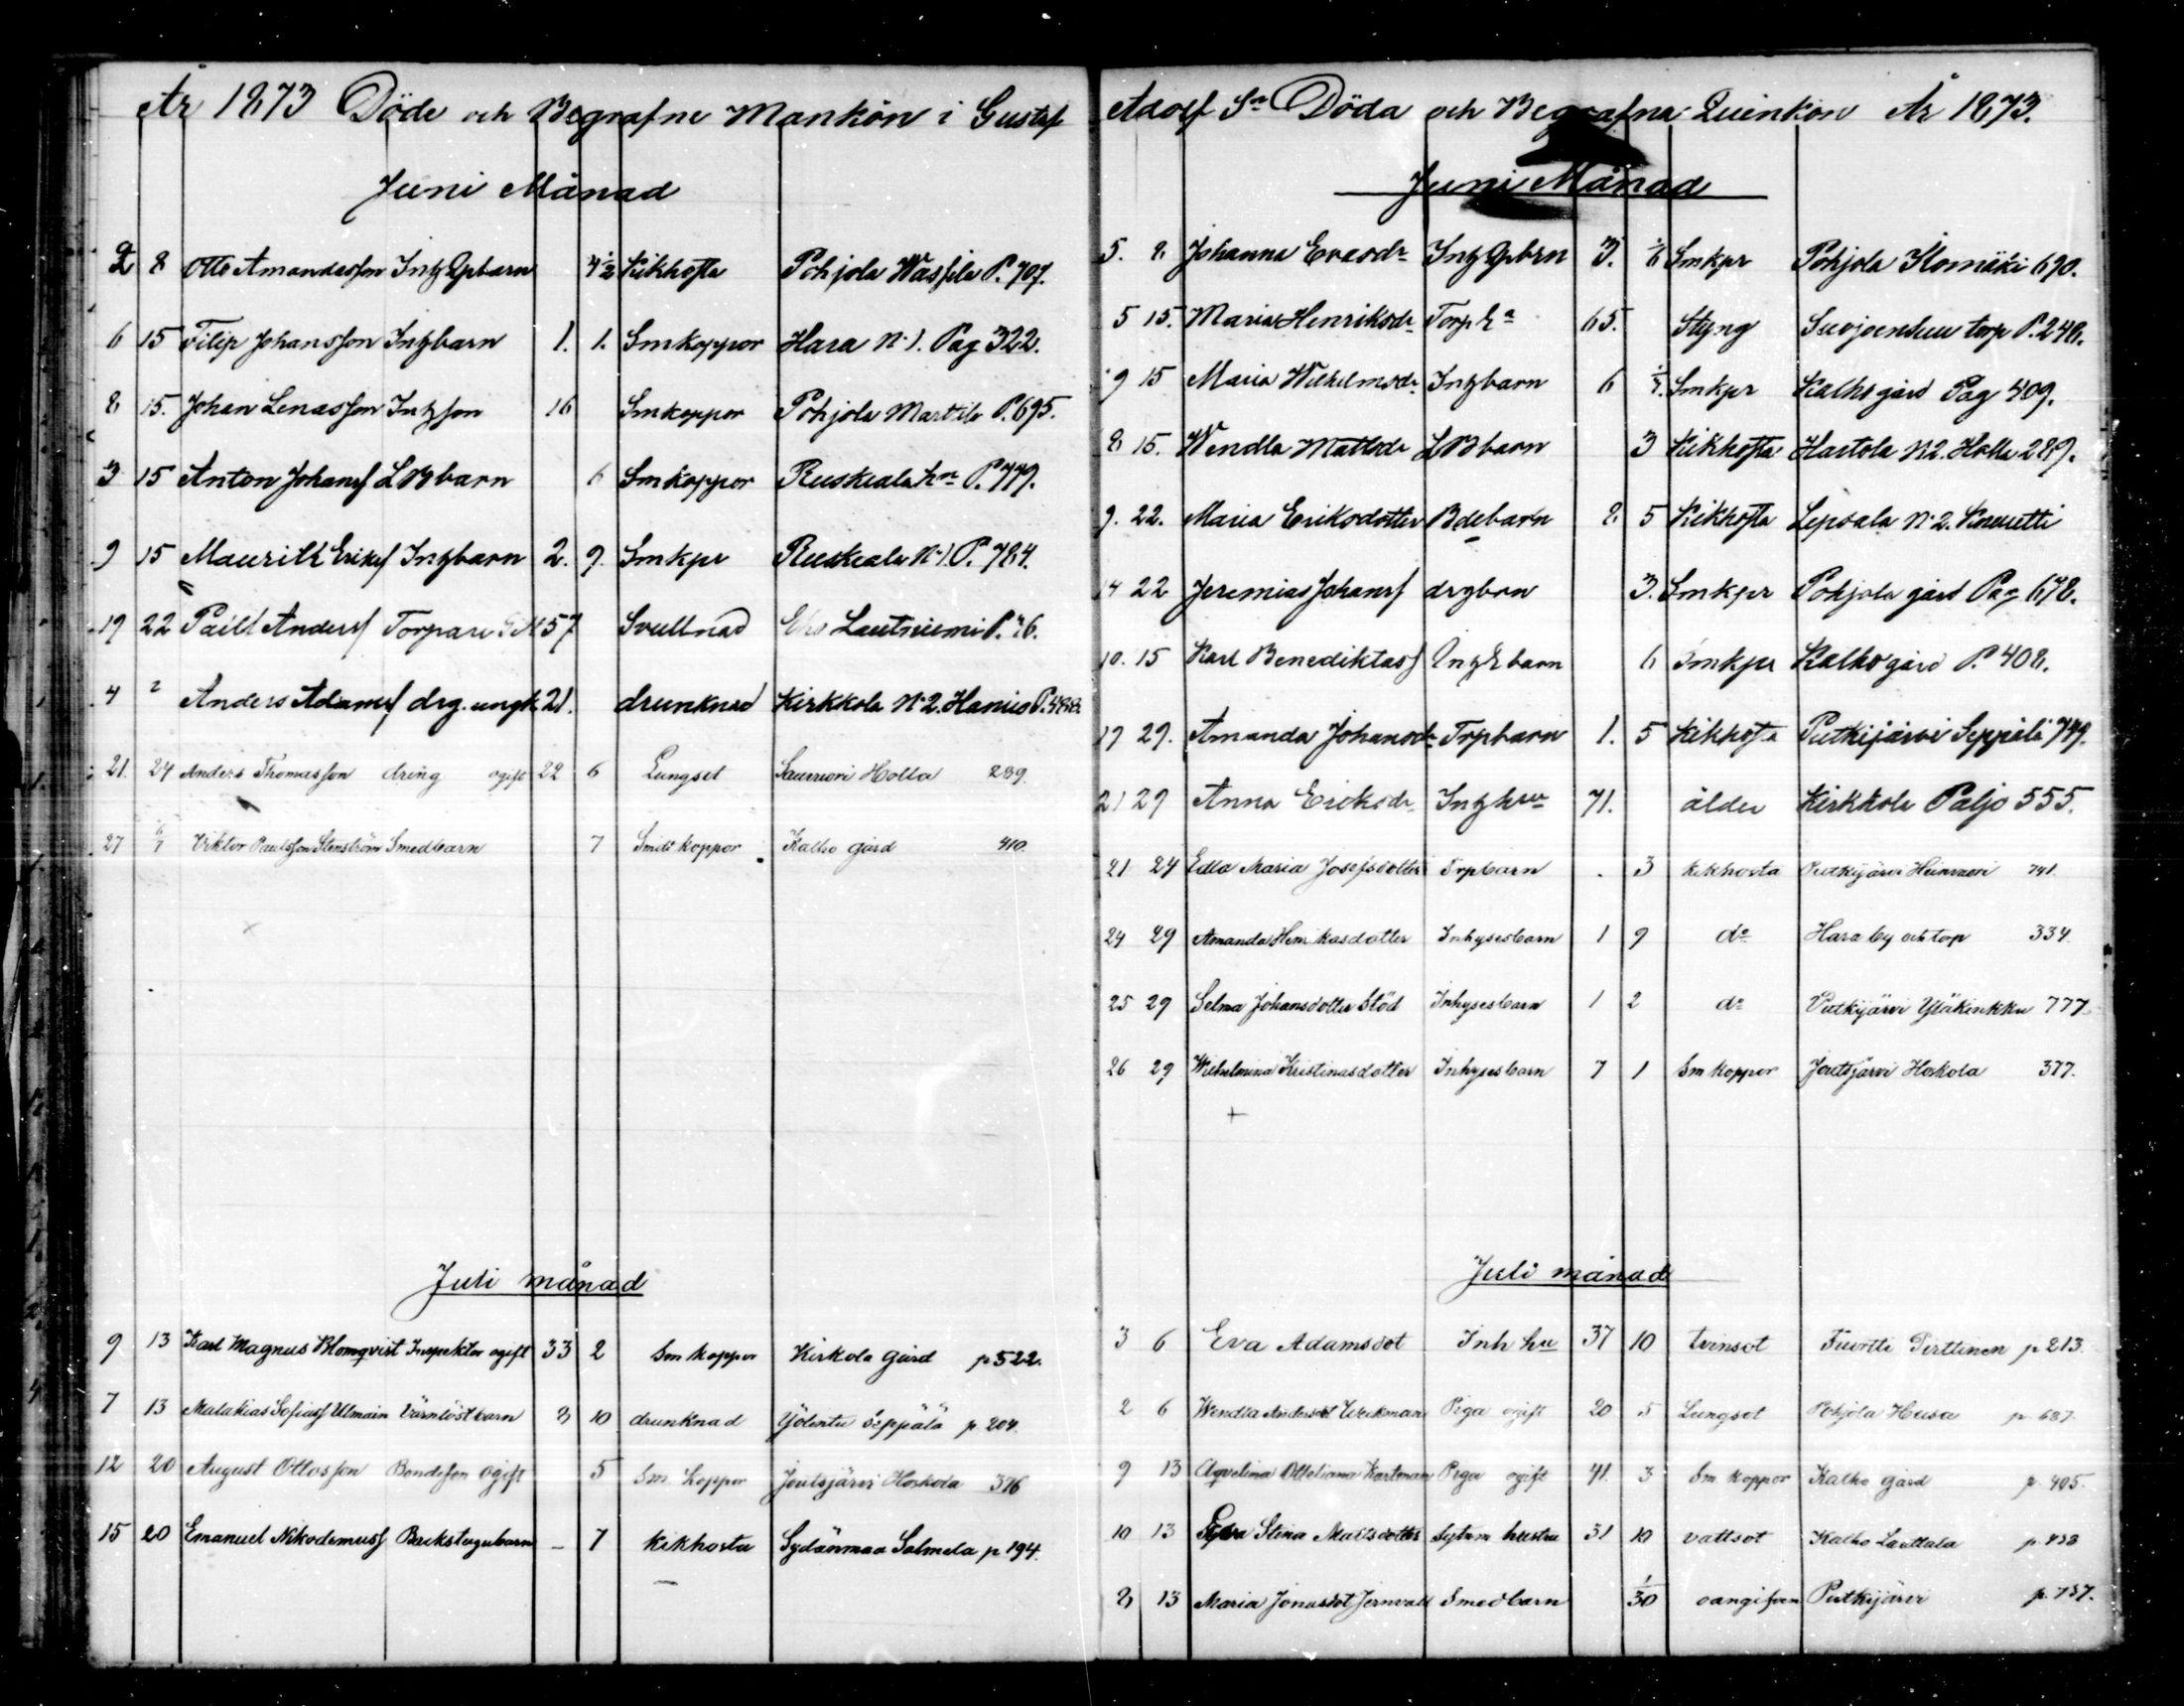 År 1873 Döde och Begrafne Mankön i Gustaf
Juni Månad
2 8 Otto Amandasson Inhgpbarn 4 1/2 Kikhosta Pohjola Wassila P. 707.
6 15 Filip Johansson Inhbarn 1. 1. Smkoppor Hara N:1. Pag 322.
8 15. Johan Lenasson Inhson 16 Smkoppor Pohjola Marttila P. 695.
3 15 Anton Johans LBbarn 6 Smkoppor Ruskeala P. 779.
9 15 Maurits Eriks Inhbarn 2. 9. Smkpr Ruskeala N:1. P. 784.
19 22 Anders Torpare 57 Svullnad Lautniemi
4 Anders Adams drg. ungk 21. drunknad Kirkkola N:2.
21. 24 Anders Thomasson dräng ogift 22 6 Lungsot Holla 289.
27 6/7 Viktor Paulsson Stenström Smedbarn 7 Smkoppor Kalho gård 410
Juli månad
9 13 Karl Magnus Blomqvist Inspektor ogift 33 2 Smkoppor Kirkola gård p 522.
7 13 Malakias Sofias Ulmain Värnlöst barn 3 10 drunknad Yölintu Seppälä p 204.
12 20 August Ottosson Bondeson ogift 5 Sm. koppor Joutsjärvi Hoskola 376
15 20 Emanuel Nikodemus Backstugubarn – 7 Kikhosta Sydänmaa Salmela p 194.
Adolf Sn Döda och Begrafna Quinkön År 1873.
Juni Månad
5. 8 Johanna Evasdr Inhgpbrn 3. Smkpr Pohjola Komäki 690.
5 15. Maria Henriksdr Torp 65. Styng torp P. 248.
9 15 Maria Wilhelmsdr Inhbarn 6 Smkpr Kalho gård Pag 409.
8 15. Wendla Mattsdr LBbarn 3 Kikhosta Hartola N:2. Holla 289.
9. 22. Maria Eriksdotter Bdebarn 8 5 Kikhosta Lepsala N:2.
14 22 Jeremias Johans drgbrn 3. Smkpr Pohjola gård Pag 678.
10. 15 Karl Benediktas Inhbarn 6 Smkpr Kalho gård P. 408.
17 29. Amanda Johansdr Trpbarn 1. 5 Kikhosta Putkijärvi Seppälä 749.
21 29 Anna Eriksdr Inhhu 71. ålder Kirkkola Paljo 555.
21 24 Edla Maria Josefsdotter Torpbarn . 3 kikhosta Putkijärvi 741.
24 29 Amanda Henrikasdotter Inhysesbarn 1 9 do Hara by och torp 334.
25 29 Selma Johansdotter Stöd Inhysesbarn 1 2 do Putkijärvi Yläkinkku 777.
26 29 Wilhelmina Kristinasdotter Inhysesbarn 7 1 Sm koppor Joutsjärvi Hoskola 377.
Juli månad
3 6 Eva Adamsdot Inh hu 37 10 tvinsot Tuortti Pirttinen p 213.
2 6 Wendla Andersdot Weckman Piga ogift 20 5 Lungsot Pohjola Husa p 687.
9 13 Aqvelina Ottoliana Kartman Piga ogift 41. 3 Sm koppor Kalho gård p. 405.
10 13 Stina Mattsdotter hustru 31 10 vattsot Kalho Lauttala p. 433
8 13 Maria Jonasdot Jernvall Smedbarn 1/30 oangifven Putkijärvi p. 737.